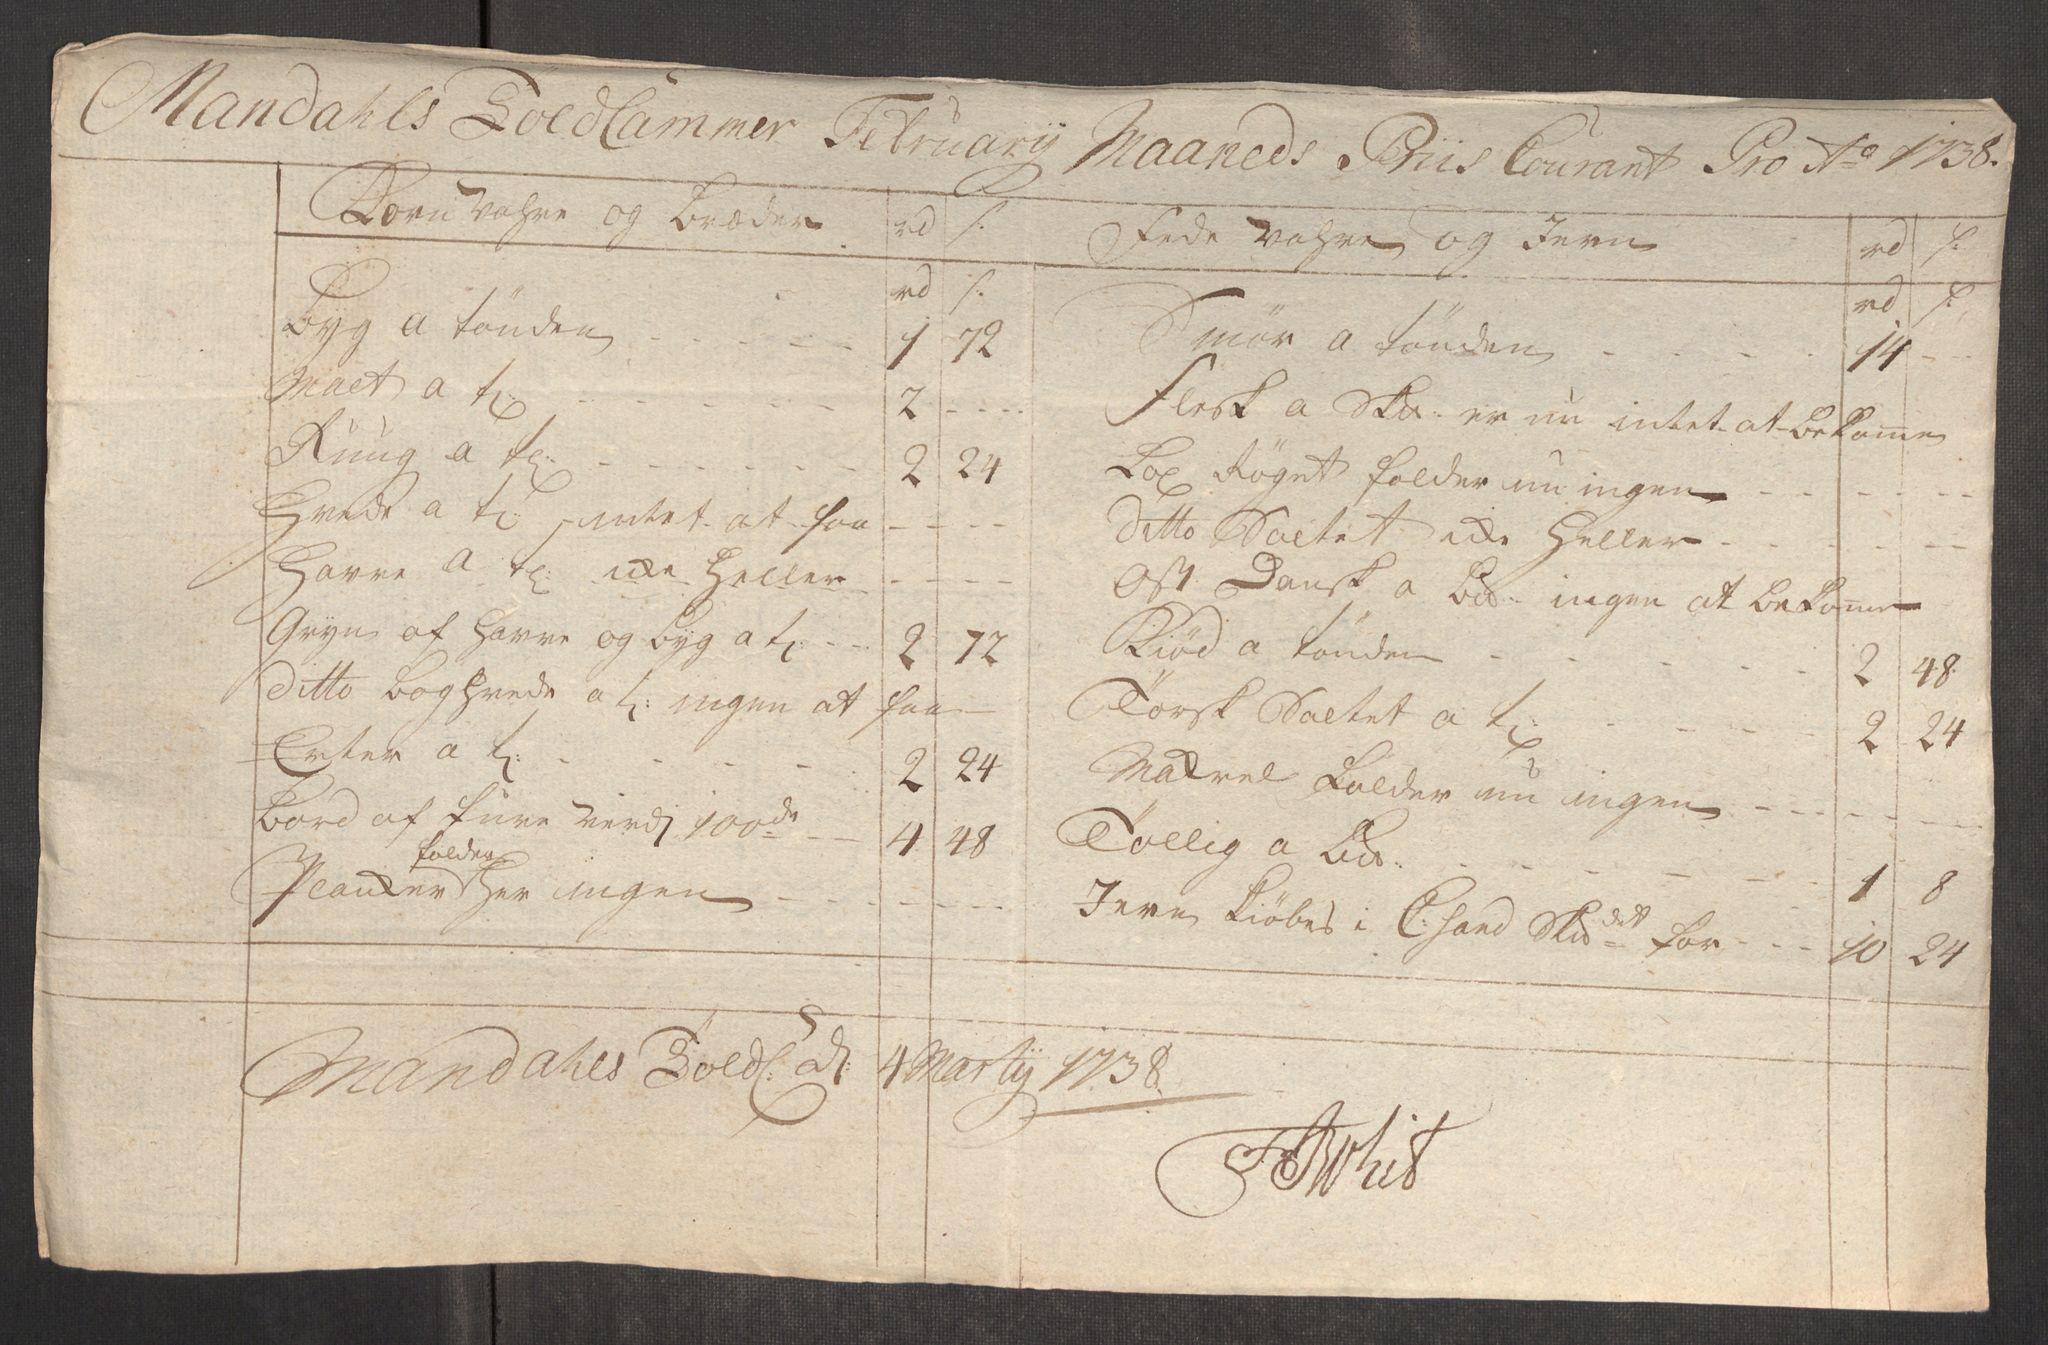 Mandahls Toldcammer February Maaneds Priis Courant Pro Ao 1738.
Korn vahre og Bræder rd s.
rd s.
Byg a tönden 1 72
Malt a t: 2
Ruug a t: 2 24
Hvede a t: intet at faa
Havre a t: icke heller
Gryn af havre og byg a t: 2 72
ditto boghvede a t: ingen at faa
Erter a t: 2 24
Bord af furu 100de 4 48
falder
Plancker her ingen
Fede vahre og Jern rd s.
rd s.
Smör a tönden 14
Flesk a er nu intet at bekome
Röget falder nu ingen
ditto Saltet icke heller
Ost Dansk a ingen at bekome
Kiöd a tönden 2 48
Torsk Saltet a t: 2 24
Mackrel falder nu ingen
Tallig a 1 8
Jern kiöbes i C:sand for 10 24
Mandahls Toldc: d: 4 Martij 1738